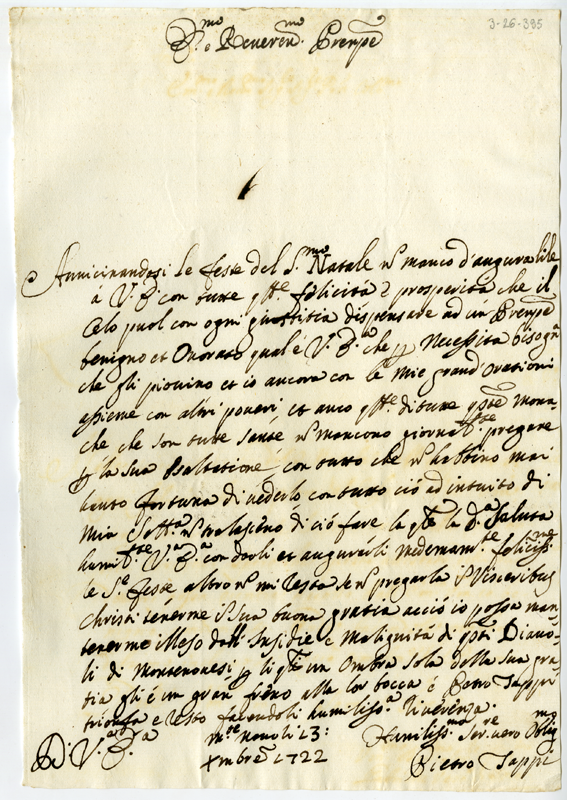 3-26-395
Reveren.mo Prenpe
Avvicinandosi le feste del S.mo Natale nō manco d'augurarlile
á V.P. con tutte q.lle felicità e prosperità che il
Celo puol con ogni giustitia dispensare ad un Prenpe
benigno et Onorato qual é V.P. che p Necessita bisogn
che gli piovino et io ancora con le Mie grand Orationi
assieme con altri poveri, et anco q.lle di tutte q.ste Mona-
che che son tutte sante nō mancono giornal.te pregare
p la sua Esaltatione, con tutto che nō habbino mai
hauto fortuna di vederlo con tutto ció ad intuito di
Mia nō tralascino di ció fare la q.le la D.a Saluta
humil.te V.a P.a con darli et augurarli medemam.te felicis.me
le S.e feste altro nō mi resta se nō pregarla Visceribus
Christi tenerme sua buona gratia acció io possa man-
tenerme illeso dall Insidie e Malignitá di q.sti Diavo-
li di Montenovesi, p li q.li un Ombra sola della sua gra-
tia gli é un gran freno alla lor bocca é Pietro Tappi
trionfa e resto facendoli humiliss.a Riverenza.
D. V.a P.a
23:
Xmbre 1722
Humiliss.mo Ser.re vero Oblig.mo
Pietro Tappi